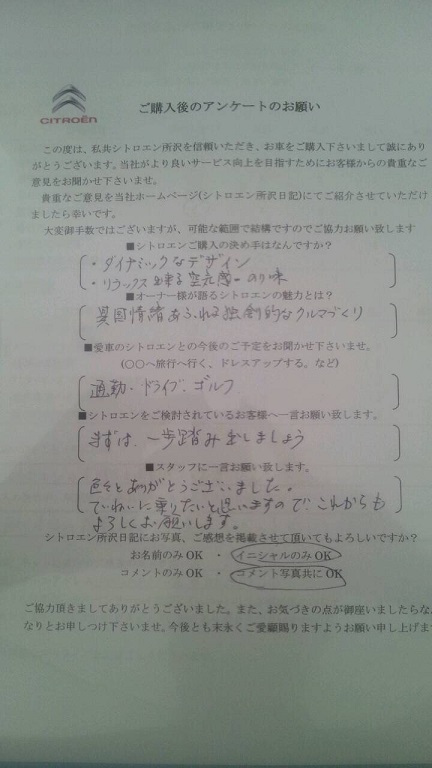 CITROËN
ご購入後のアンケートのお願い
この度は、私共シトロエン所沢を信頼いただき、お車をご購入下さいまして誠にあり
がとうございます。当社がより良いサービス向上を目指すためにお客様からの貴重なご
意見をお聞かせ下さいませ。
貴重なご意見を当社ホームページ(シトロエン所沢日記)にてご紹介させていただけ
ましたら幸いです。
大変御手数ではございますが、可能な範囲で結構ですのでご協力お願い致します
■シトロエンご購入の決め手はなんですか?
・ダイナミックなデザイン
・リラックス出来る空気感 のり味
■オーナー様が語るシトロエンの魅力とは?
異国情緒あふれる独創的なクルマづくり
■愛車のシトロエンとの今後のご予定をお聞かせ下さいませ。
(○○へ旅行へ行く、ドレスアップする。など)
通勤・ドライブ・ゴルフ
■シトロエンをご検討されているお客様へ一言お願い致します。
まずは、一歩踏み出しましょう
■スタッフに一言お願い致します。
色々とありがとうございました。
ていねいに乗りたいと思いますので、これからも
よろしくお願いします。
シトロエン所沢日記にお写真、ご感想を掲載させて頂いてもよろしいですか?
お名前のみOK ・ イニシャルのみOK
コメントのみOK ・ コメント写真共にOK
ご協力頂きましてありがとうございました。また、お気づきの点が御座いましたらな
なりとお申しつけ下さいませ。今後とも末永くご愛顧賜りますようお願い申し上げます